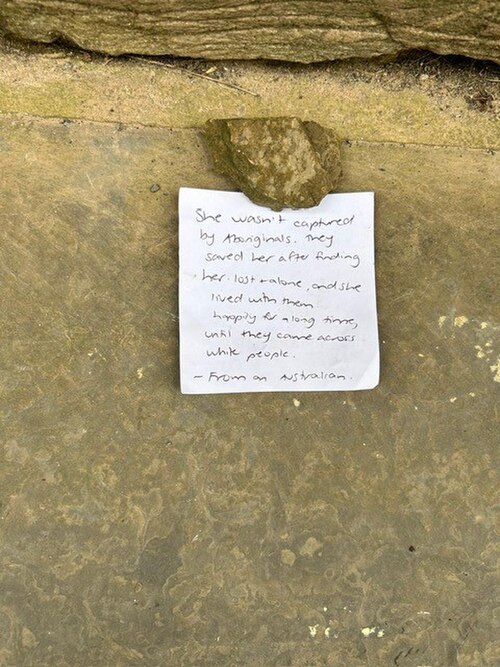 She wasn't captured
by Aboriginals. They
saved her after finding
her lost + alone, and she
lived with them
happily for a long time,
until they came across
white people.
- From an Australian.